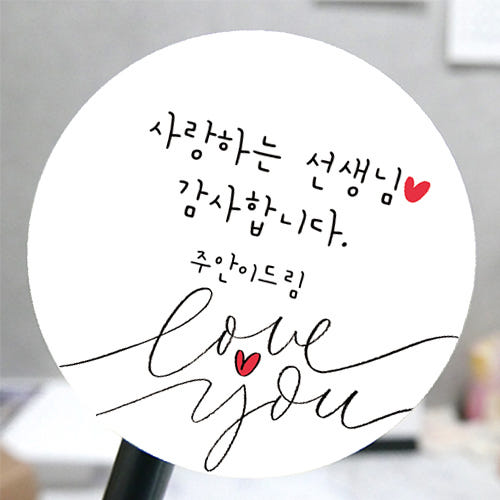 사랑하는 선생님
감사합니다.
주안이드림
love
you